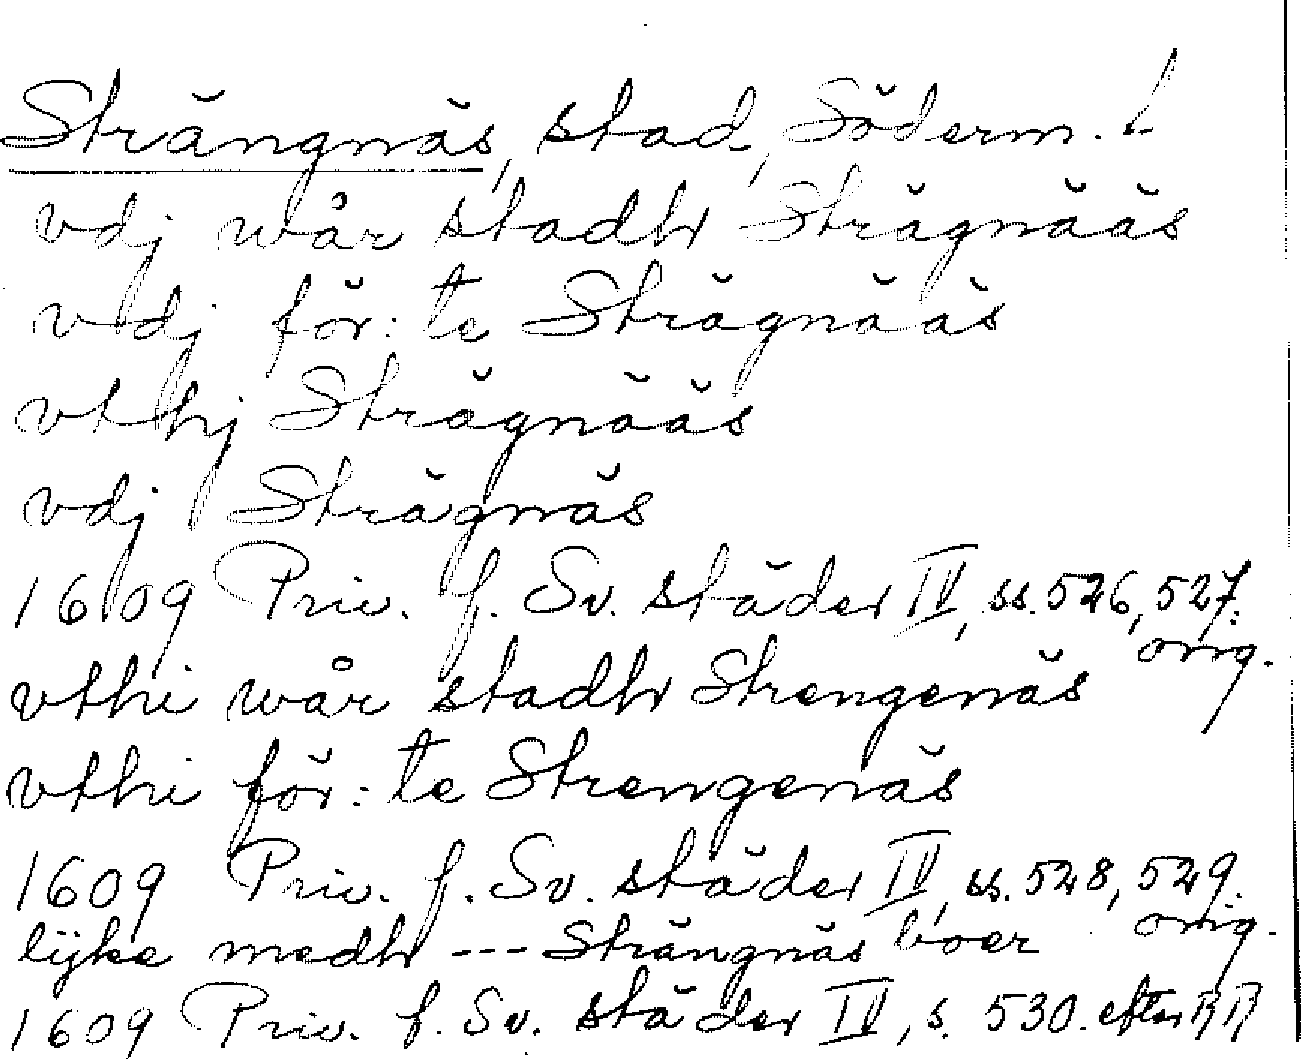 Strängnäs, stad, Söderm. l.
vdj wår stadh Strägnääs
vdj för: te Strägnääs
vthj Strägnääs
vdj Strägnäs
1609 Priv. f. Sv. städer IV, ss. 526, 527.
orig.
vthi wår stadh Strengenäs
vthi för: te Strengenäs
1609 Priv. f. Sv. städer IV, ss. 528, 529.
orig.
lijke medh --- Strängnäs boer
1609 Priv. f. Sv. städer IV, s. 530. efter RR